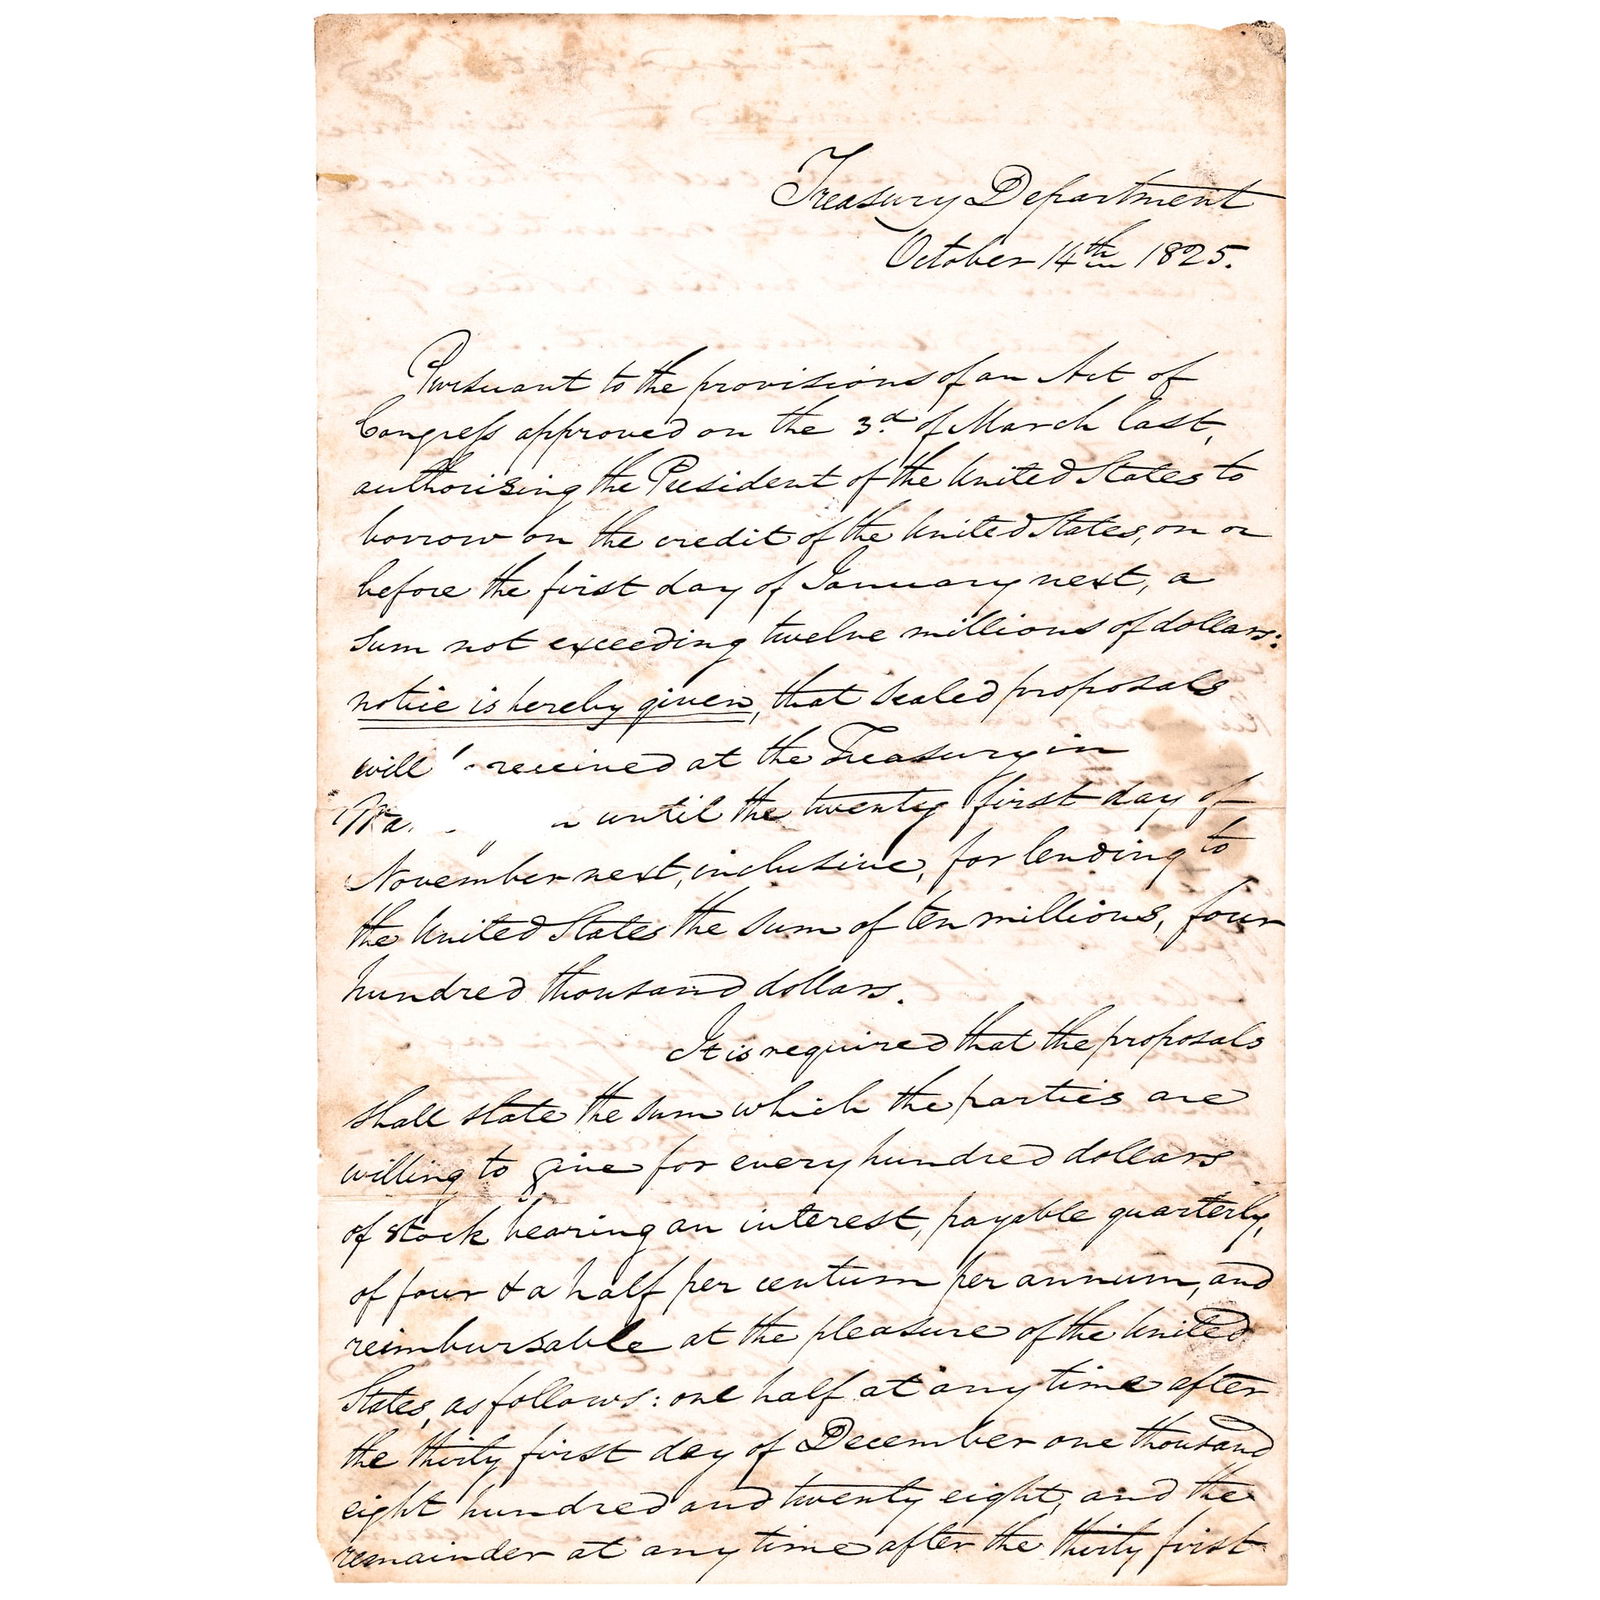 Treasury Department
October 14th 1825.
Pursuant to the provisions of an Act of
Congress approved on the 3d of March last,
authorising the President of the United States to
borrow on the credit of the United States, on or
before the first day of January next, a
sum not exceeding twelve millions of dollars:
notice is hereby given, that sealed proposals
will received at the Treasury in
until the twenty first day of
November next, inclusive, for lending to
the United States the sum of ten millions, four
hundred thousand dollars.
It is required that the proposals
shall state the sum which the parties are
willing to give for every hundred dollars
of stock bearing an interest, payable quarterly,
of four & a half per centum per annum, and
reimbursable at the pleasure of the United
States, as follows: one half at any time after
the thirty first day of December one thousand
eight hundred and twenty eight, and the
remainder at any time after the thirty first